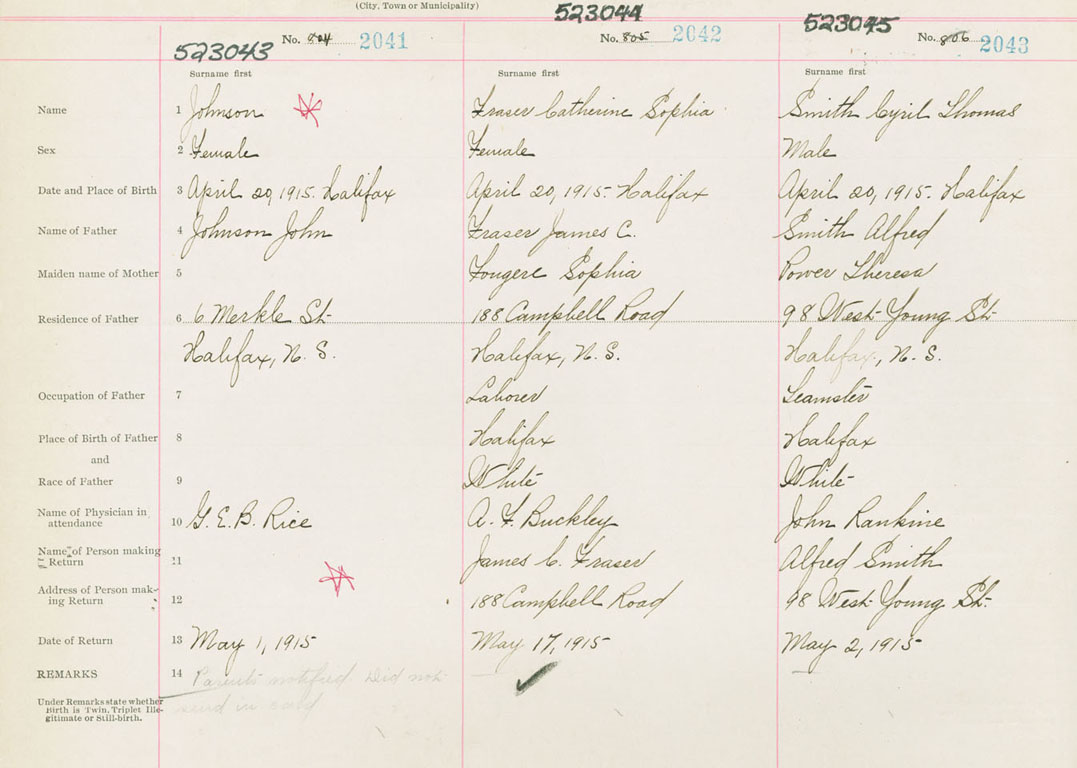 (City, Town or Municipality)
523043 No. 804 2041
523044 No. 805 2042
523045 No. 806 2043
Surname first Surname first Surname first
Name 1 Johnson Fraser Catherine Sophia Smith Cyril Thomas
Sex 2 Female Female Male
Date and Place of Birth 3 April 20, 1915. Halifax April 20, 1915. Halifax April 20, 1915. Halifax
Name of Father 4 Johnson John Fraser James C. Smith Alfred
Maiden name of Mother 5 Fougere Sophia Power Theresa
Residence of Father 6 6 Merkle St. 188 Campbell Road 98 West Young St.
Halifax, N. S. Halifax, N. S. Halifax, N. S.
Occupation of Father 7 Laborer Teamster
Place of Birth of Father 8 Halifax Halifax
and
Race of Father 9 White White
Name of Physician in
attendance 10 G. E. B. Rice A. F. Buckley John Rankine
Name of Person making
Return 11 James C. Fraser Alfred Smith
Address of Person mak-
ing Return 12 188 Campbell Road 98 West Young St.
Date of Return 13 May 1, 1915 May 17, 1915 May 2, 1915
REMARKS 14 Parents notified. Did not
send in card
Under Remarks state whether
Birth is Twin, Triplet Ille-
gitimate or Still-birth.